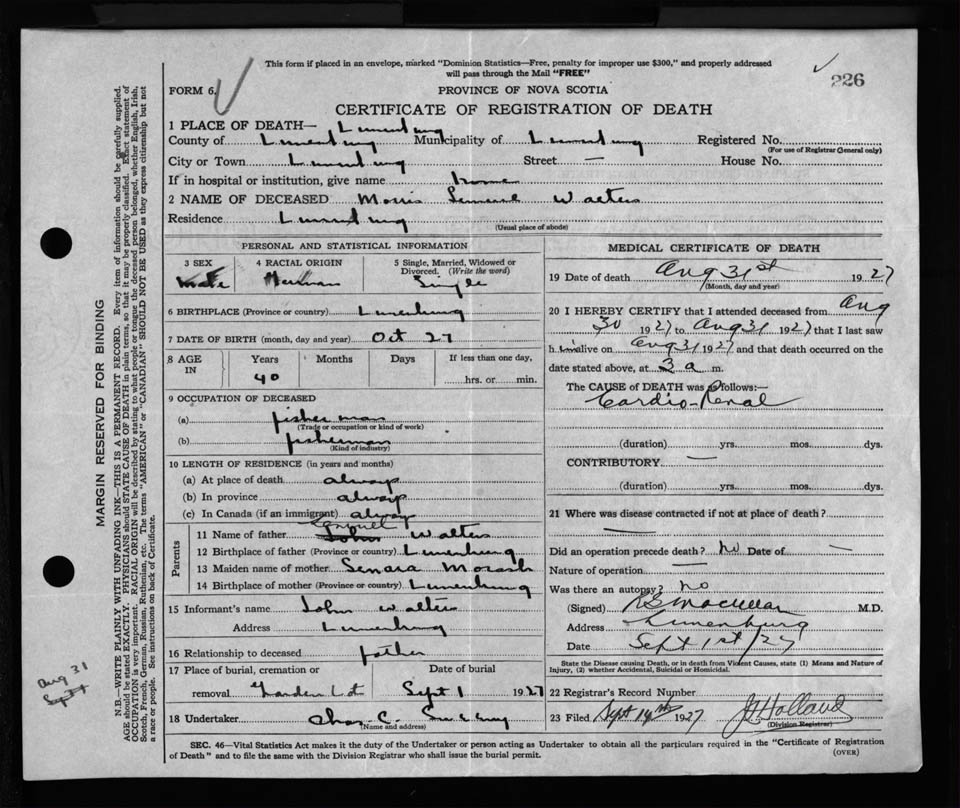 This form if placed in an envelope, marked "Dominion Statistics—Free, penalty for improper use $300," and properly addressed
will pass through the Mail "FREE"
226
FORM 6.
PROVINCE OF NOVA SCOTIA
CERTIFICATE OF REGISTRATION OF DEATH
1 PLACE OF DEATH— Lunenburg
County of Lunenburg Municipality of Lunenburg Registered No.
(For use of Registrar General only)
City or Town Lunenburg Street — House No.
If in hospital or institution, give name home
2 NAME OF DECEASED Morris Walters
Residence Lunenburg
(Usual place of abode)
PERSONAL AND STATISTICAL INFORMATION
3 SEX 4 RACIAL ORIGIN 5 Single, Married, Widowed or
Divorced. (Write the word)
Male German Single
6 BIRTHPLACE (Province or country) Lunenburg
7 DATE OF BIRTH (month, day and year) Oct 27
8 AGE IN Years Months Days If less than one day,
40 hrs. or min.
9 OCCUPATION OF DECEASED
(a) fisherman
(Trade or occupation or kind of work)
(b) fisherman
(Kind of industry)
10 LENGTH OF RESIDENCE (in years and months)
(a) At place of death always
(b) In province always
(c) In Canada (if an immigrant) always
Parents
11 Name of father John Walters
12 Birthplace of father (Province or country) Lunenburg
13 Maiden name of mother Senora Morash
14 Birthplace of mother (Province or country) Lunenburg
15 Informant's name John Walters
Address Lunenburg
16 Relationship to deceased father
17 Place of burial, cremation or Date of burial
removal Garden Lot Sept 1 1927
18 Undertaker Chas. C.
(Name and address)
MEDICAL CERTIFICATE OF DEATH
19 Date of death Aug 31st 1927
(Month, day and year)
20 I HEREBY CERTIFY that I attended deceased from Aug
30 1927 to Aug 31 1927 that I last saw
him alive on Aug 31 1927 and that death occurred on the
date stated above, at 3 a m.
The CAUSE of DEATH was as follows:—
Cardio-Renal
(duration) yrs. mos. dys.
CONTRIBUTORY —
(duration) yrs. mos. dys.
21 Where was disease contracted if not at place of death?
—
Did an operation precede death? no Date of —
Nature of operation —
Was there an autopsy? no
(Signed) M.D.
Address Lunenburg
Date Sept 1st/27
State the Disease causing Death, or in death from Violent Causes, state (1) Means and Nature of
Injury, (2) whether Accidental, Suicidal or Homicidal.
22 Registrar's Record Number
23 Filed Sept 14th 1927 Holland
(Division Registrar)
SEC. 46—Vital Statistics Act makes it the duty of the Undertaker or person acting as Undertaker to obtain all the particulars required in the "Certificate of Registration
of Death" and to file the same with the Division Registrar who shall issue the burial permit.
(OVER)
MARGIN RESERVED FOR BINDING
N.B.—WRITE PLAINLY WITH UNFADING INK—THIS IS A PERMANENT RECORD. Every item of information should be carefully supplied.
AGE should be stated EXACTLY. PHYSICIANS should STATE CAUSE OF DEATH in plain terms, so that it may be properly classified. Exact statement of
OCCUPATION is very important. RACIAL ORIGIN will be described by stating to what people or tongue the deceased person belonged, whether English, Irish,
Scotch, French, German, Russian, Ruthenian, etc. The terms "AMERICAN" or "CANADIAN" SHOULD NOT BE USED as they express citizenship but not
a race or people. See instructions on back of Certificate.
Aug 31
Sept